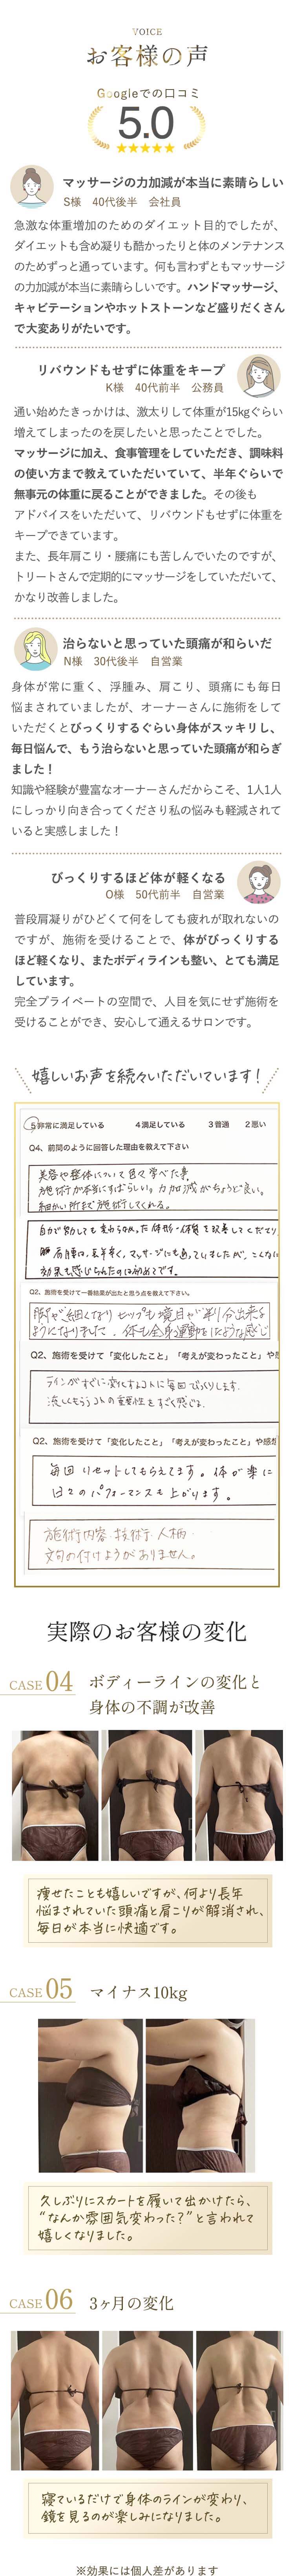 VOICE
お客様の声
Googleでの口コミ
5.0
★★★★★
マッサージの力加減が本当に素晴らしい
S様 40代後半 会社員
急激な体重増加のためのダイエット目的でしたが、
ダイエットも含め凝りも酷かったりと体のメンテナンス
のためずっと通っています。何も言わずともマッサージ
の力加減が本当に素晴らしいです。ハンドマッサージ、
キャビテーションやホットストーンなど盛りだくさん
で大変ありがたいです。
リバウンドもせずに体重をキープ
K様 40代前半 公務員
通い始めたきっかけは、激太りして体重が15kgぐらい
増えてしまったのを戻したいと思ったことでした。
マッサージに加え、食事管理をしていただき、調味料
の使い方まで教えていただいていて、半年ぐらいで
無事元の体重に戻ることができました。その後も
アドバイスをいただいて、リバウンドもせずに体重を
キープできています。
また、長年肩こり・腰痛にも苦しんでいたのですが、
トリートさんで定期的にマッサージをしていただいて、
かなり改善しました。
治らないと思っていた頭痛が和らいだ
N様 30代後半 自営業
身体が常に重く、浮腫み、肩こり、頭痛にも毎日
悩まされていましたが、オーナーさんに施術をして
いただくとびっくりするぐらい身体がスッキリし、
毎日悩んで、もう治らないと思っていた頭痛が和らぎ
ました！
知識や経験が豊富なオーナーさんだからこそ、1人1人
にしっかり向き合ってくださり私の悩みも軽減されて
いると実感しました！
びっくりするほど体が軽くなる
O様 50代前半 自営業
普段肩凝りがひどくて何をしても疲れが取れないの
ですが、施術を受けることで、体がびっくりする
ほど軽くなり、またボディラインも整い、とても満足
しています。
完全プライベートの空間で、人目を気にせず施術を
受けることができ、安心して通えるサロンです。
嬉しいお声を続々いただいています！
5非常に満足している 4満足している 3普通 2悪い
Q4、前問のように回答した理由を教えて下さい
美容や整体について色々学べた事。
施術が本当にすばらしい。力加減がちょうど良い。
細かい所まで施術してくれる。
自分が努力しても変わらなかった体形・体質を改善してくださり
効果を感じられたのは初めてです。
Q2、施術を受けて一番結果が出たと思う点を教えて下さい。
Q2、施術を受けて「変化したこと」「考えが変わったこと」や感
ラインがすぐに変化することに毎回びっくりします。
流してもらうことの重要性をすごく感じる。
Q2、施術を受けて「変化したこと」「考えが変わったこと」や感想
毎回リセットしてもらえてます。体が楽に
日々のパフォーマンスも上がります。
施術内容・技術・人柄・
文句の付けようがありません。
実際のお客様の変化
CASE 04 ボディーラインの変化と
身体の不調が改善
痩せたことも嬉しいですが、何より長年
悩まされていた頭痛と肩こりが解消され、
毎日が本当に快適です。
CASE 05 マイナス10kg
久しぶりにスカートを履いて出かけたら、
“なんか雰囲気変わった？”と言われて
嬉しくなりました。
CASE 06 3ヶ月の変化
寝ているだけで身体のラインが変わり、
鏡を見るのが楽しみになりました。
※効果には個人差があります